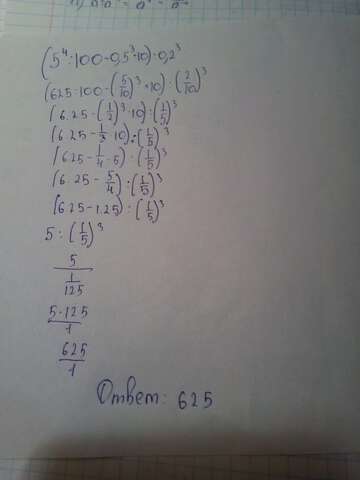 (5⁴:100-0,5³·10):0,2³
(625:100-(5/10)³·10):(2/10)³
(6.25-(1/2)³·10):(1/5)³
(6.25-1/3·10):(1/5)³
(625-1/4·5):(1/5)³
(6.25-5/4):(1/5)³
(625-1.25):(1/5)³
5:(1/5)³
5/(1/125)
5·125/1
625/1
Ответ: 625